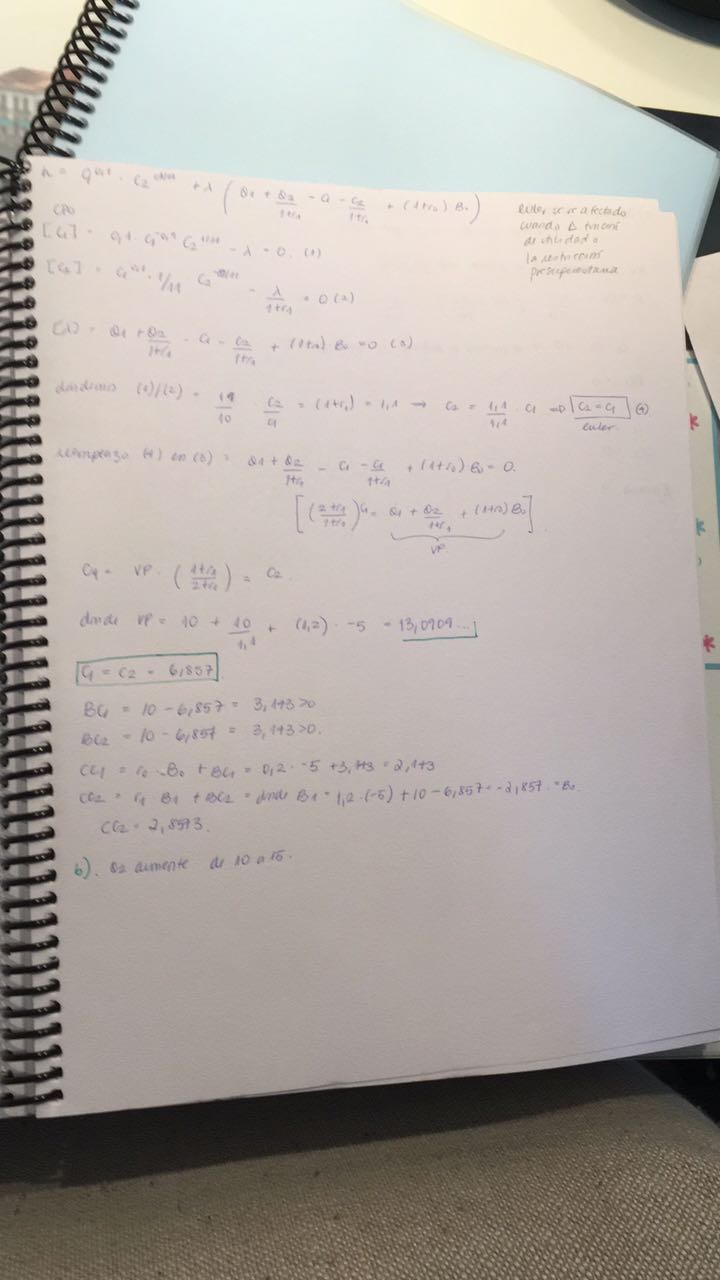 + λ ( Q1 + Q2/1+r1 - C1 - C2/1+r1 + (1+r0) B0 )
Euler se ve afectado
cuando Δ función
de utilidad o
la restricción
presupuestaria
CPO
[C1] = 0,1 · C1^-0,9 C2^1/11 - λ = 0. (1)
[C2] = C1^0,1 · 1/11 C2^-10/11 - λ/1+r1 = 0 (2)
[λ] = Q1 + Q2/1+r1 - C1 - C2/1+r1 + (1+r0) B0 = 0 (3)
dividimos (1)/(2) = 11/10 · C2/C1 = (1+r1) = 1,1 → C2 = 1,1/1,1 · C1 ⇒ C2 = C1 (4)
euler.
reemplazo (4) en (3) = Q1 + Q2/1+r1 - C1 - C1/1+r1 + (1+r0) B0 = 0.
[ (2+r1/1+r1) C1 = Q1 + Q2/1+r1 + (1+r0) B0 ]
VP
C1 = VP · (1+r1/2+r1) = C2.
donde VP = 10 + 10/1,1 + (1,2) · -5 = 13,0909...
C1 = C2 = 6,857
BC1 = 10 - 6,857 = 3,143 >0
BC2 = 10 - 6,857 = 3,143 >0.
CC1 = r0 · B0 + BC1 = 0,2 · -5 + 3,143 = 2,143
CC2 = r1 B1 + BC2 = donde B1 = 1,2 · (-5) + 10 - 6,857 = -2,857. = B1
CC2 = 2,8573.
b). Q2 aumente de 10 a 15.